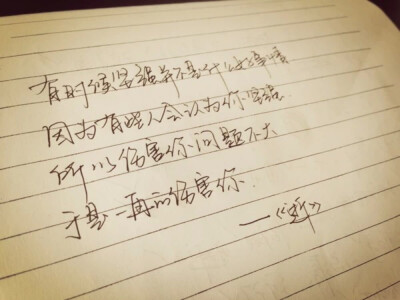 有时候坚强并不是什么好事情
因为有些人会认为你坚强
所以伤害你问题不大
于是一再的伤害你
——《》